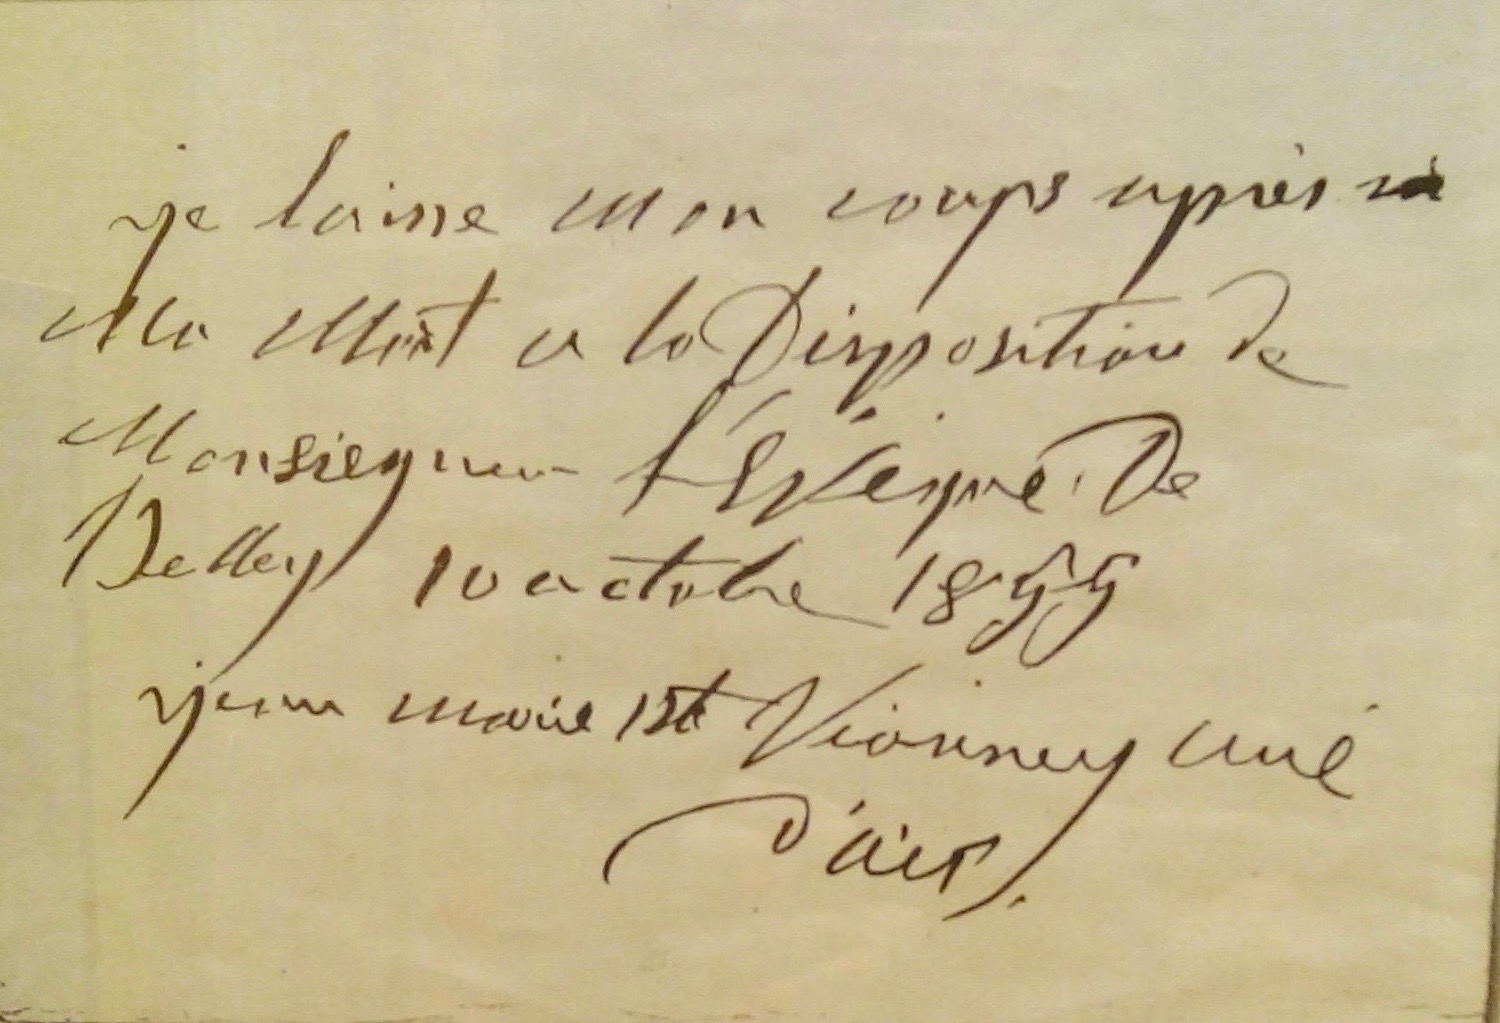 je laisse mon corps après
Ma Mort a la Disposition de
Monsiegneur l'Evêque De
Belley 10 octobre 1855
jean marie Bte Vianney curé
D'ars.